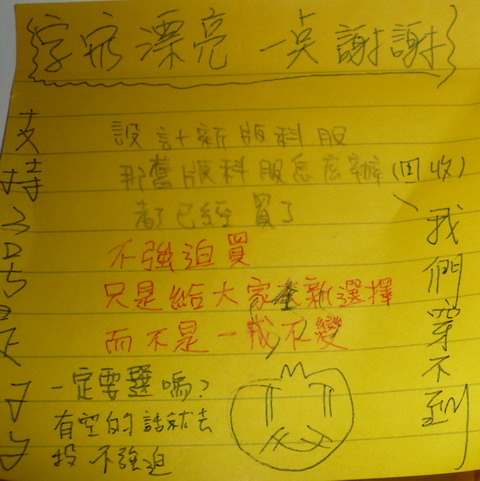 字永漂亮 一点 謝謝
設計新版科服
那舊版科服怎麼辦(回收)
都已經買了
不強迫買
只是給大家新選擇
而不是一成不變
一定要選嗎?
有空的話就去
投 不強迫
支持
我們穿不到